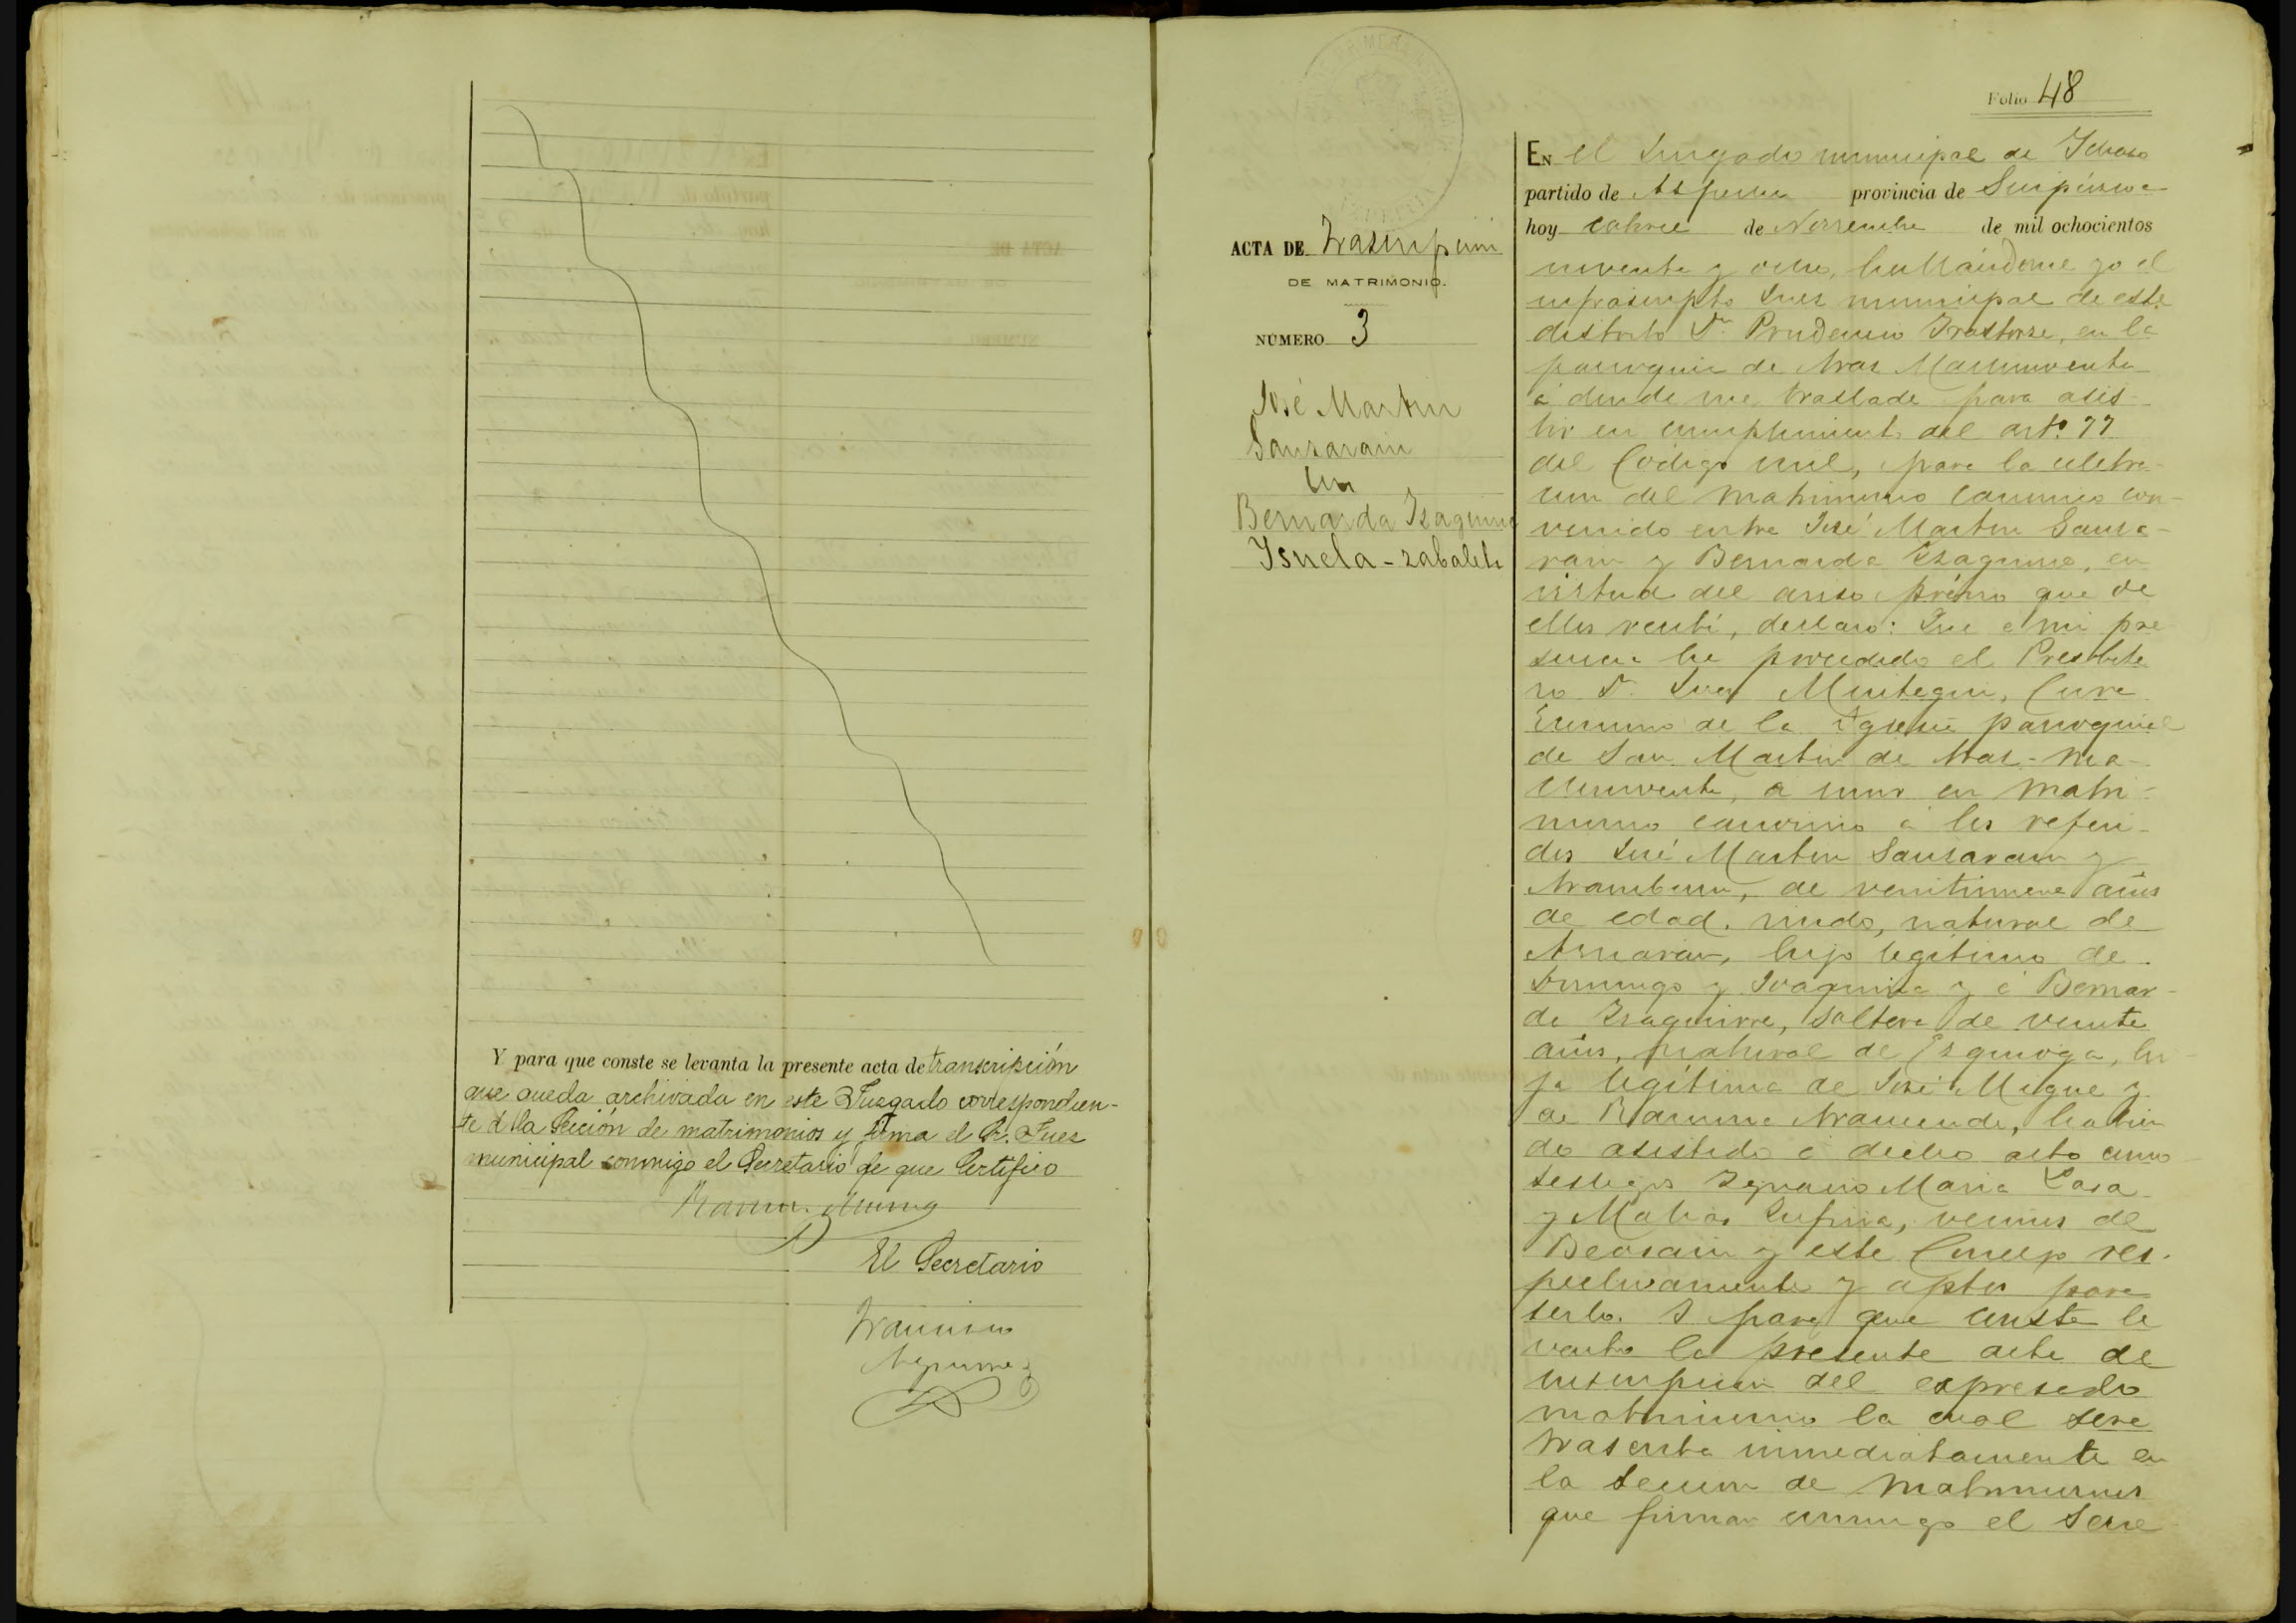 Y para que conste se levanta la presente acta de transcripción
que queda archivada en este Juzgado correspondien-
te á la Sección de matrimonios y firma el Sr. Juez
municipal conmigo el Secretario de que Certifico
El Secretario
Folio 48
ACTA DE Trascripcion
DE MATRIMONIO.
NÚMERO 3
José Martin
Sansarain
con
Bernarda Izaguirre
Ysuela - zabaleta
EN el Jurgado municipal de Ichaso
partido de Azpeitia provincia de Guipúzcoa
hoy catorce de Noviembre de mil ochocientos
noventa y ocho, hallándome yo el
infrascripto Juez municipal de este
distrito Dn. Prudencio Irastorza, en la
parroquia de Aras
á donde me traslade para asis-
tir en cumplimiento del art.º 77
del Codigo civil, para la celebra-
cion del matrimonio canonico con-
venido entre José Martin Sansa-
rain y Bernarda Izaguirre, en
virtud del aviso prévio que de
ellos recibí, declaro: Que á mi pre
sencia ha procedido el Presbite
ro D. Juan Muitegui, Cura
Ecónomo de la Iglesia parroquial
de San Martin de Aras-ma-
á unir en matri-
monio canonico á los referi-
dos José Martin Sansarain y
Aramburu, de veintinueve años
de edad, viudo, natural de
Asnarain, hijo legitimo de
Domingo y Joaquina y á Bernar-
da Izaguirre, soltera de veinte
años, natural de Ezquioga, hi-
ja legítima de José Migue y
de Ramona Aramendi, habien
do asistido á dicho acto como
testigos Ignacio Maria Lasa
y Matias Zufiria, vecinos de
Beasain y este Concejo res-
pectivamente y aptos para
serlo. Y para que conste le
vanto la presente acta de
inscripcion del expresado
matrimonio la cual será
trascrita inmediatamente en
la seccion de matrimonios
que firman conmigo el Secre